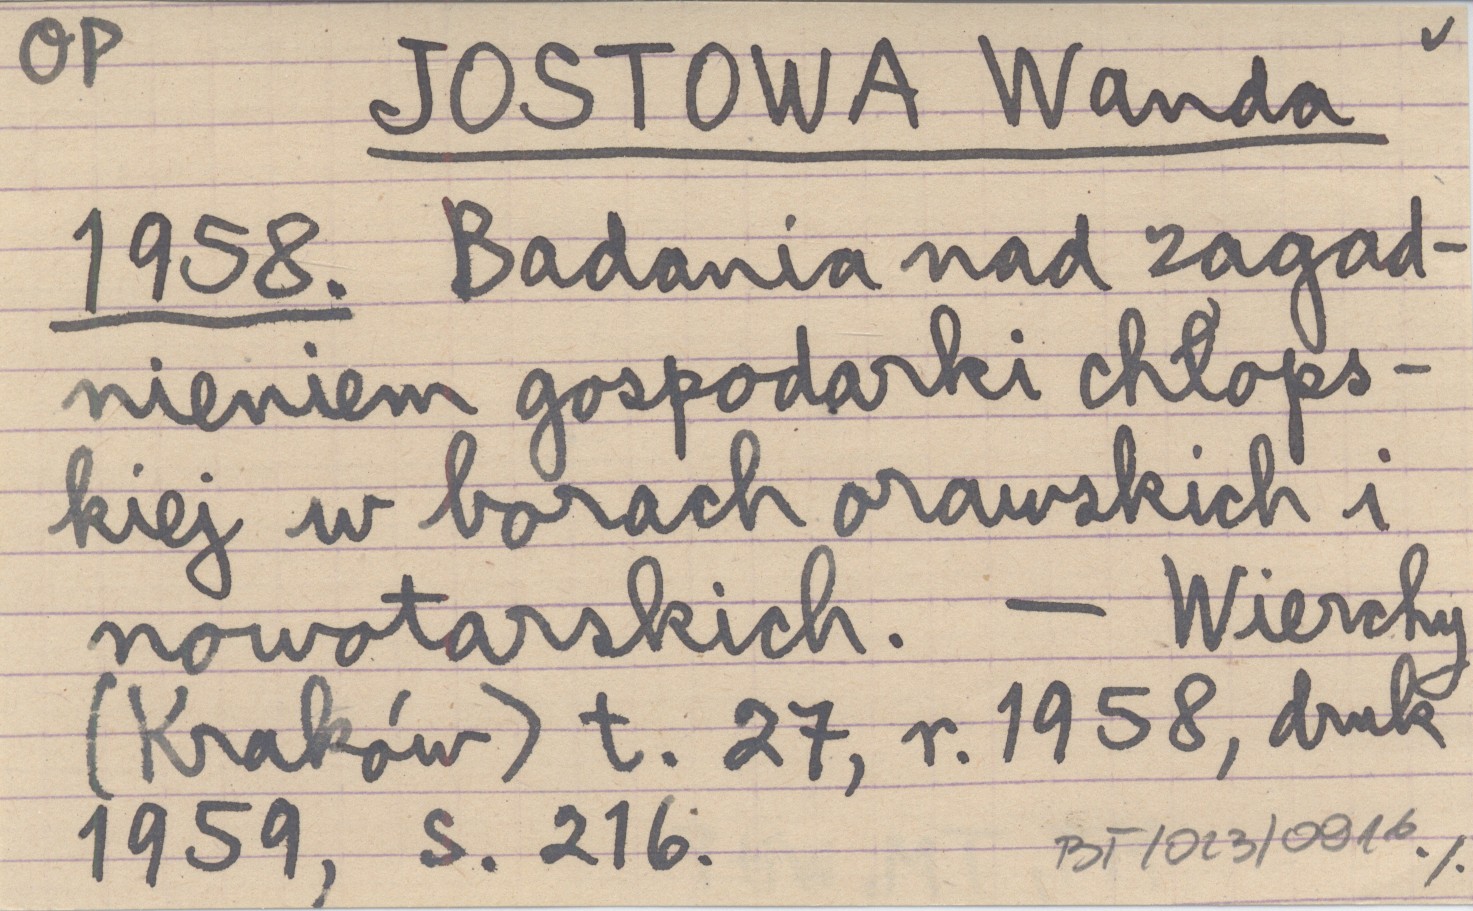 OP JOSTOWA Wanda ✓
1958. Badania nad zagad-
nieniem gospodarki chłops-
kiej w borach orawskich i
nowotarskich. — Wierchy
(Kraków) t. 27, r. 1958, druk
1959, s. 216.
BT/023/0916 ./.